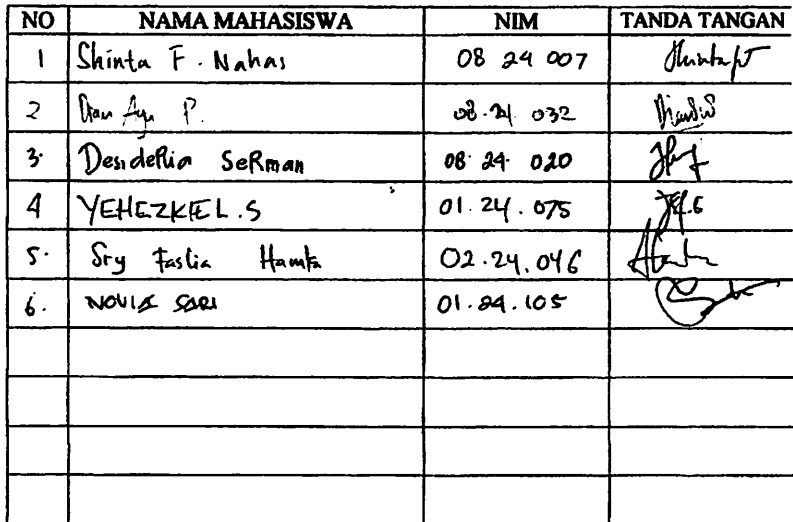 NO NAMA MAHASISWA NIM TANDA TANGAN
1 Shinta F. Nahas 08 24 007
2 Dian Ayu P. 08.24 032
3. Desideria SeRman 08. 24. 020
4 YEHEZKIEL.S 01.24.075
5. Sry Faslia Hamka 02.24.046
6. NOVIA SARI 01.24.105